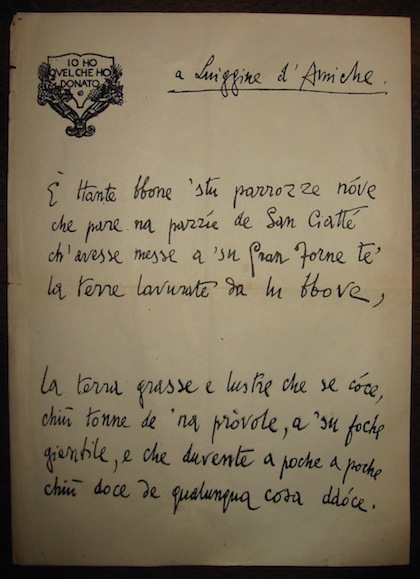 IO HO
QVEL CHE HO
DONATO
a Luiggine d'Amiche.
È ttante bbone 'stu parrozze nóve
che pare na pazzíe de San Ciatté
ch'avesse messe a 'su Gran Forne te'
la terre lavurate da lu bbove,
la terra grasse e lustre che se cóce,
chiù tonne de 'na pròvole, a 'su foche
gientile, e che duvente a poche a poche
chiù doce de qualunqua cosa ddóce.